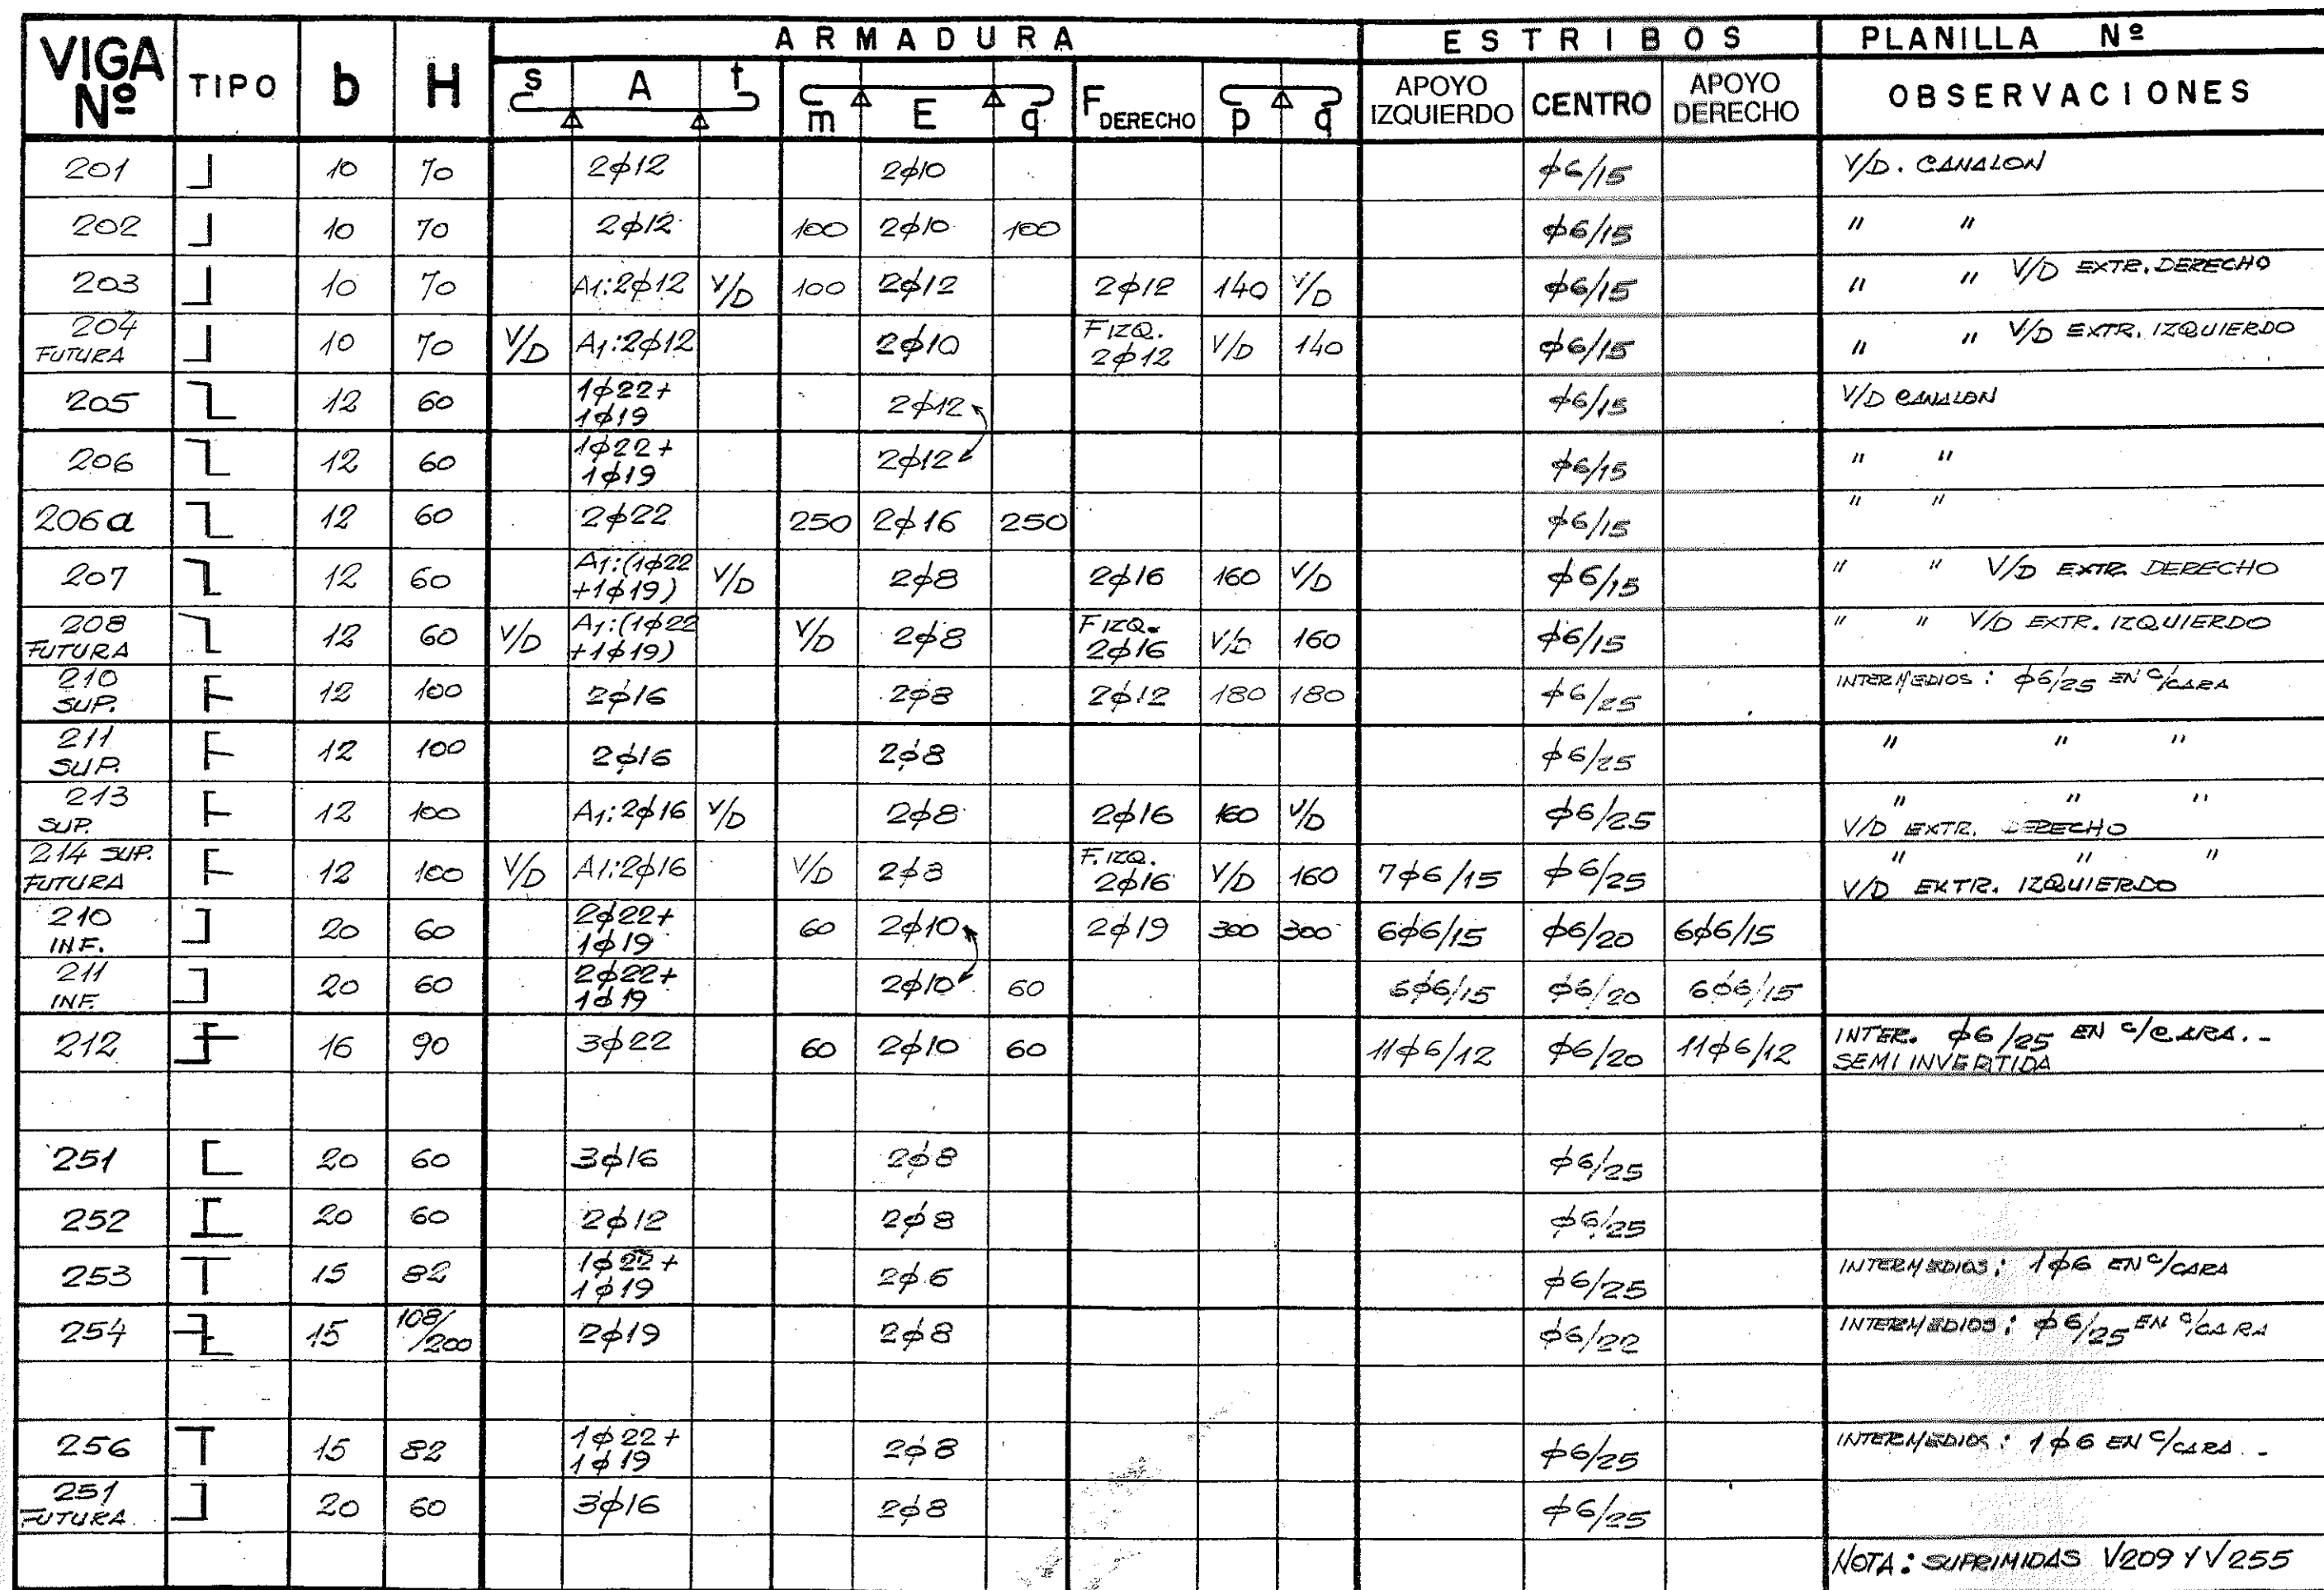 VIGA Nº TIPO b H ARMADURA ESTRIBOS PLANILLA Nº
s A t m E q F DERECHO p q APOYO IZQUIERDO CENTRO APOYO DERECHO OBSERVACIONES
201 10 70 2ϕ12 2ϕ10 ϕ6/15 V/D. CANALON
202 10 70 2ϕ12 100 2ϕ10 100 ϕ6/15 " "
203 10 70 A1:2ϕ12 V/D 100 2ϕ12 2ϕ12 140 V/D ϕ6/15 " " V/D EXTR. DERECHO
204 FUTURA 10 70 V/D A1:2ϕ12 2ϕ10 F IZQ. 2ϕ12 V/D 140 ϕ6/15 " " V/D EXTR. IZQUIERDO
205 12 60 1ϕ22+ 1ϕ19 2ϕ12 ϕ6/15 V/D CANALON
206 12 60 1ϕ22+ 1ϕ19 2ϕ12 ϕ6/15 " "
206a 12 60 2ϕ22 250 2ϕ16 250 ϕ6/15 " "
207 12 60 A1:(1ϕ22 +1ϕ19) V/D 2ϕ8 2ϕ16 160 V/D ϕ6/15 " " V/D EXTR. DERECHO
208 FUTURA 12 60 V/D A1:(1ϕ22 +1ϕ19) V/D 2ϕ8 F IZQ. 2ϕ16 V/D 160 ϕ6/15 " " V/D EXTR. IZQUIERDO
210 SUP. 12 100 2ϕ16 2ϕ8 2ϕ12 180 180 ϕ6/25 INTERMEDIOS: ϕ6/25 EN C/CARA
211 SUP. 12 100 2ϕ16 2ϕ8 ϕ6/25 " " "
213 SUP. 12 100 A1:2ϕ16 V/D 2ϕ8 2ϕ16 160 V/D ϕ6/25 " " " V/D EXTR. DERECHO
214 SUP. FUTURA 12 100 V/D A1:2ϕ16 V/D 2ϕ8 F. IZQ. 2ϕ16 V/D 160 7ϕ6/15 ϕ6/25 " " " V/D EXTR. IZQUIERDO
210 INF. 20 60 2ϕ22+ 1ϕ19 60 2ϕ10 2ϕ19 300 300 6ϕ6/15 ϕ6/20 6ϕ6/15
211 INF. 20 60 2ϕ22+ 1ϕ19 2ϕ10 60 6ϕ6/15 ϕ6/20 6ϕ6/15
212 16 90 3ϕ22 60 2ϕ10 60 11ϕ6/12 ϕ6/20 11ϕ6/12 INTER. ϕ6/25 EN C/CARA.- SEMI INVERTIDA
251 20 60 3ϕ16 2ϕ8 ϕ6/25
252 20 60 2ϕ12 2ϕ8 ϕ6/25
253 15 82 1ϕ22+ 1ϕ19 2ϕ6 ϕ6/25 INTERMEDIOS: 1ϕ6 EN C/CARA
254 15 108/200 2ϕ19 2ϕ8 ϕ6/22 INTERMEDIOS: ϕ6/25 EN C/CARA
256 15 82 1ϕ22+ 1ϕ19 2ϕ8 ϕ6/25 INTERMEDIOS: 1ϕ6 EN C/CARA.-
251 FUTURA. 20 60 3ϕ16 2ϕ8 ϕ6/25
NOTA: SUPRIMIDAS V209 Y V255